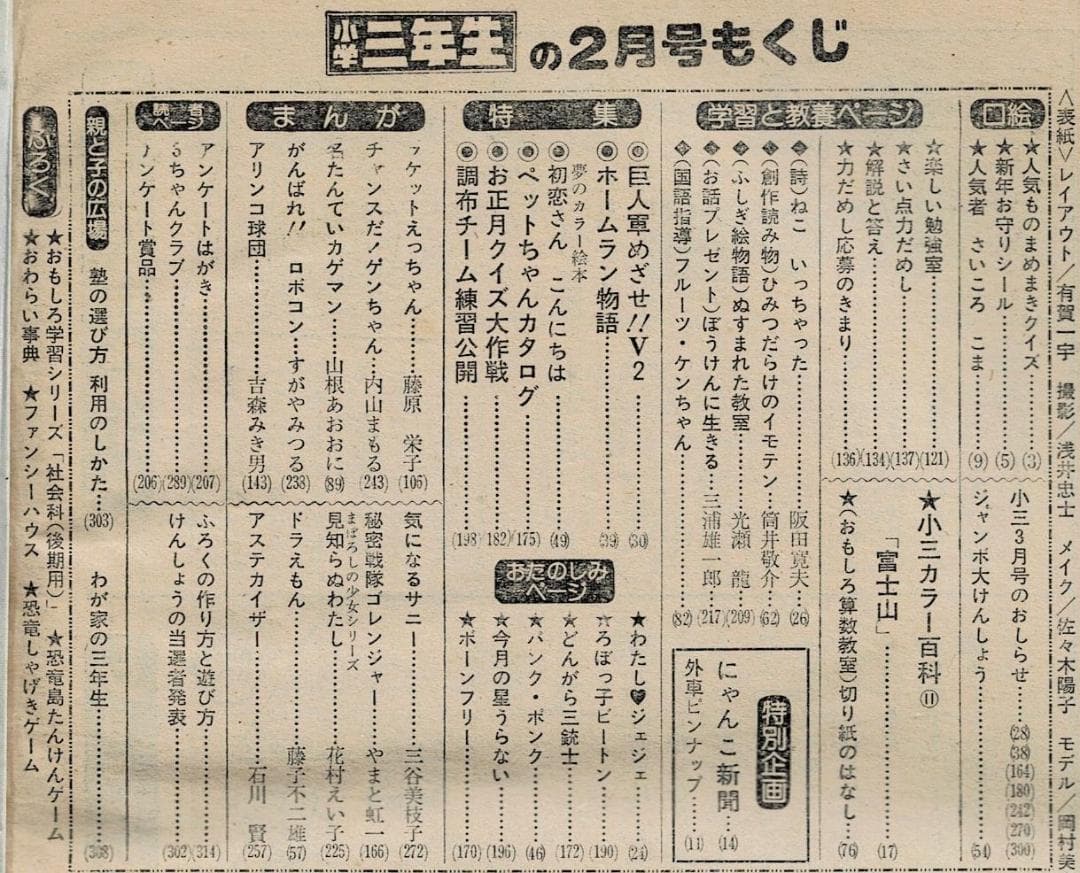 小学三年生の2月号もくじ
〈表紙〉レイアウト/有賀一宇 撮影/浅井忠士 メイク/佐々木陽子 モデル/岡村美
口絵
★人気ものまめまきクイズ……(3)
★新年お守りシール……(5)
★人気者 さいころ こま……(9)
小三3月号のおしらせ……(28)(38)(164)(180)(242)(270)(300)
ジャンボ大けんしょう……(54)
学習と教養ページ
★楽しい勉強室……(121)
★さい点力だめし……(137)
★解説と答え……(134)
★力だめし応募のきまり……(136)
★小三カラー百科⑪
「富士山」……(17)
★(おもしろ算数教室)切り紙のはなし……(76)
◆(詩)ねこ いっちゃった……阪田寛夫…(26)
◆(創作読み物)ひみつだらけのイモテン……筒井敬介…(62)
◆(ふしぎ絵物語)ぬすまれた教室……光瀬 龍…(209)
◆(お話プレゼント)ぼうけんに生きる……三浦雄一郎…(217)
◆(国語指導)フルーツ・ケンちゃん……(82)
特別企画
にゃんこ新聞……(14)
外車ピンナップ……(11)
特集
◉巨人軍めざせ!!V2……(30)
◉ホームラン物語……(39)
夢のカラー絵本
◉初恋さん こんにちは……(49)
◉ペットちゃんカタログ……(175)
◉お正月クイズ大作戦……(182)
◉調布チーム練習公開……(198)
おたのしみページ
★わたし♥ジェジェ……(24)
★ろぼっ子ビートン……(190)
★どんがら三銃士……(172)
★パンク・ポンク……(46)
★今月の星うらない……(196)
★ボーンフリー……(170)
まんが
ッケットえっちゃん……藤原 栄子(105)
チャンスだ!ゲンちゃん…内山まもる(243)
名たんていカゲマン……山根あおおに(89)
がんばれ!! ロボコン…すがやみつる(233)
アリンコ球団……吉森みき男(143)
気になるサニー……三谷美枝子(272)
秘密戦隊ゴレンジャー……やまと虹一(166)
まぼろしの少女シリーズ
見知らぬわたし……花村えい子(225)
ドラえもん……藤子不二雄(57)
アステカイザー……石川 賢(257)
読者ページ
アンケートはがき……(207)
ちゃんクラブ……(289)
アンケート賞品……(206)
ふろくの作り方と遊び方……(314)
けんしょうの当選者発表……(302)
親と子の広場
塾の選び方 利用のしかた…(303)
わが家の三年生……(308)
ふろく
★おもしろ学習シリーズ「社会科(後期用)」 ★恐竜島たんけんゲーム
★おわらい事典 ★ファンシーハウス ★恐竜しゃげきゲーム